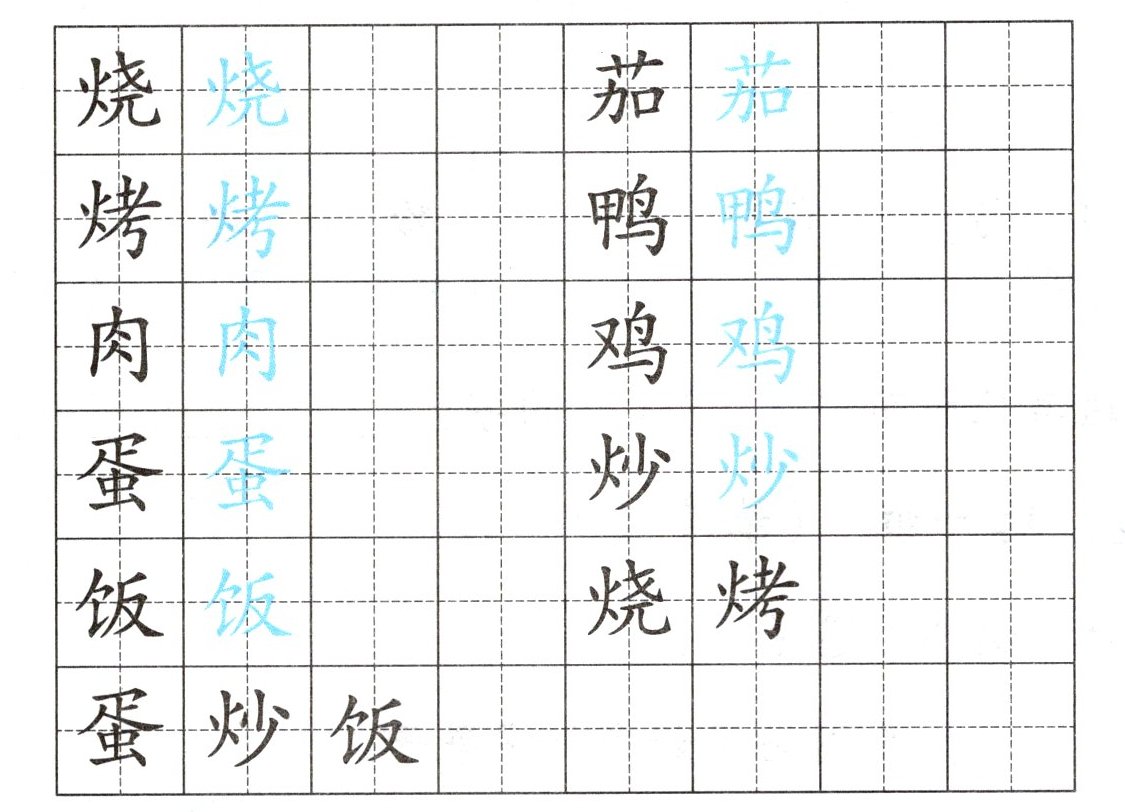 烧 烧 茄 茄
烤 烤 鸭 鸭
肉 肉 鸡 鸡
蛋 蛋 炒 炒
饭 饭 烧 烤
蛋 炒 饭